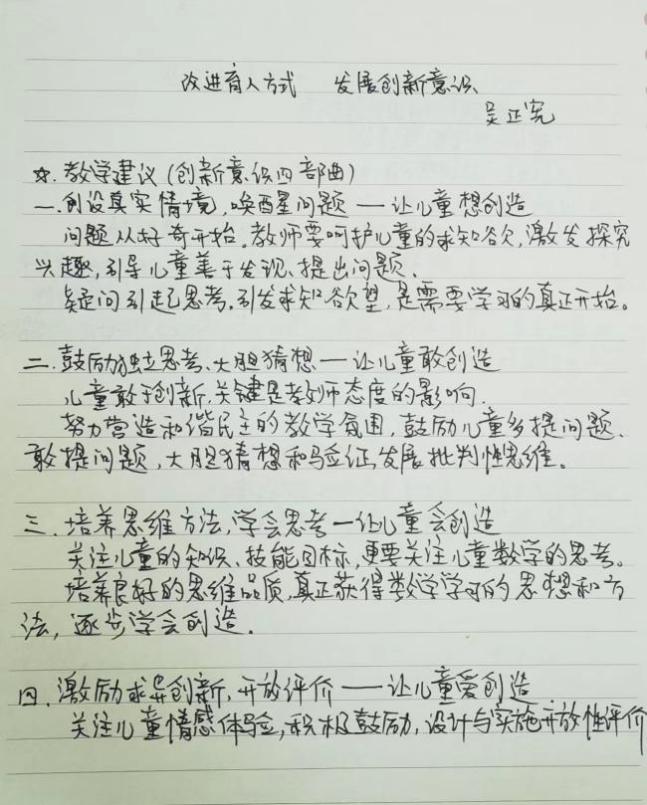 改进育人方式 发展创新意识
吴正宪
☆. 教学建议(创新意识四部曲)
一. 创设真实情境,唤醒问题 — 让儿童想创造
问题从好奇开始,教师要呵护儿童的求知欲,激发探究
兴趣,引导儿童善于发现、提出问题.
疑问引起思考,引发求知欲望,是需要学习的真正开始。
二. 鼓励独立思考、大胆猜想 — 让儿童敢创造
儿童敢于创新,关键是老师态度的影响.
努力营造和谐民主的教学氛围,鼓励儿童多提问题、
敢提问题,大胆猜想和验证,发展批判性思维。
三. 培养思维方法,学会思考 — 让儿童会创造
关注儿童的知识、技能目标,更要关注儿童数学的思考。
培养良好的思维品质,真正获得数学学习的思想和方
法,逐步学会创造.
四. 激励求异创新,开放评价 — 让儿童爱创造
关注儿童情感体验,积极鼓励,设计与实施开放性评价